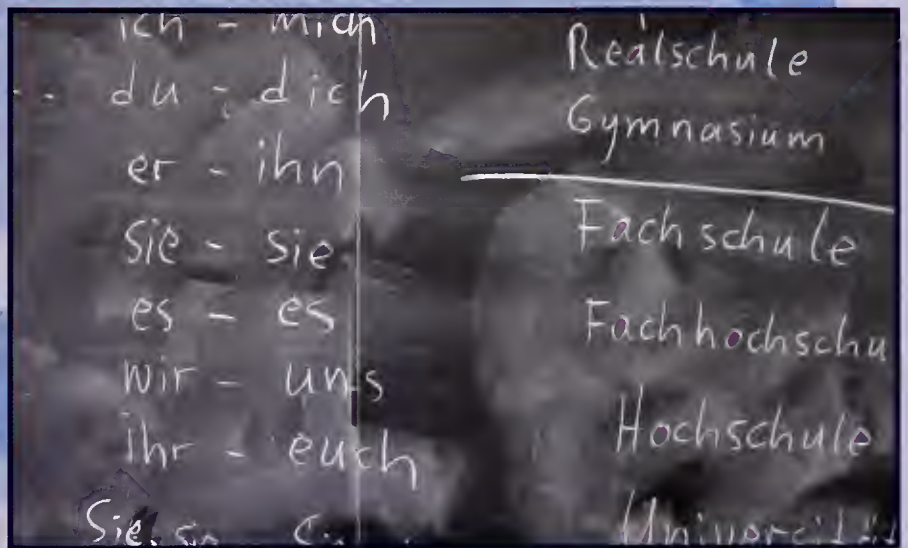 ich - mich
du - dich
er - ihn
sie - sie
es - es
wir - uns
ihr - euch
Sie,
Realschule
Gymnasium
Fachschule
Fachhochschu
Hochschule
Universität